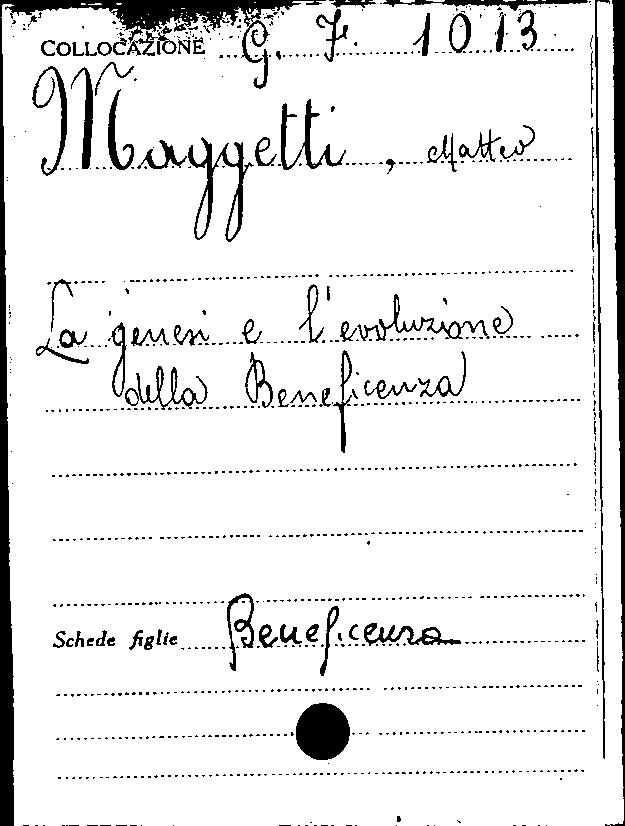 COLLOCAZIONE G. F. 1013
Maggetti, Matteo
La genesi e l'evoluzione
della Beneficenza
Schede figlie Beneficenza